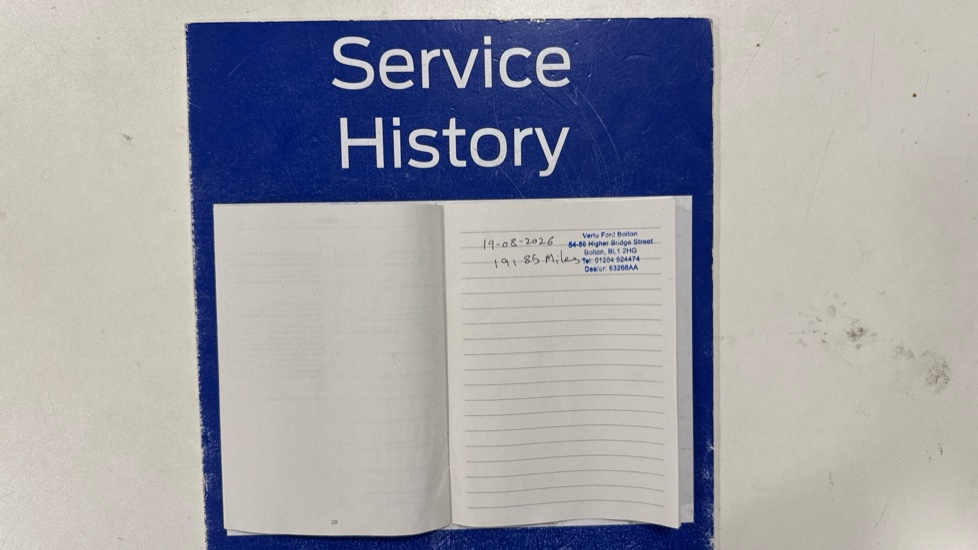 Service
History
19-08-2026
191 85 Miles
Vertu Ford Bolton
54-56 Higher Bridge Street
Bolton, BL1 2HG
Tel: 01204 524474
Dealer: 63266AA
28